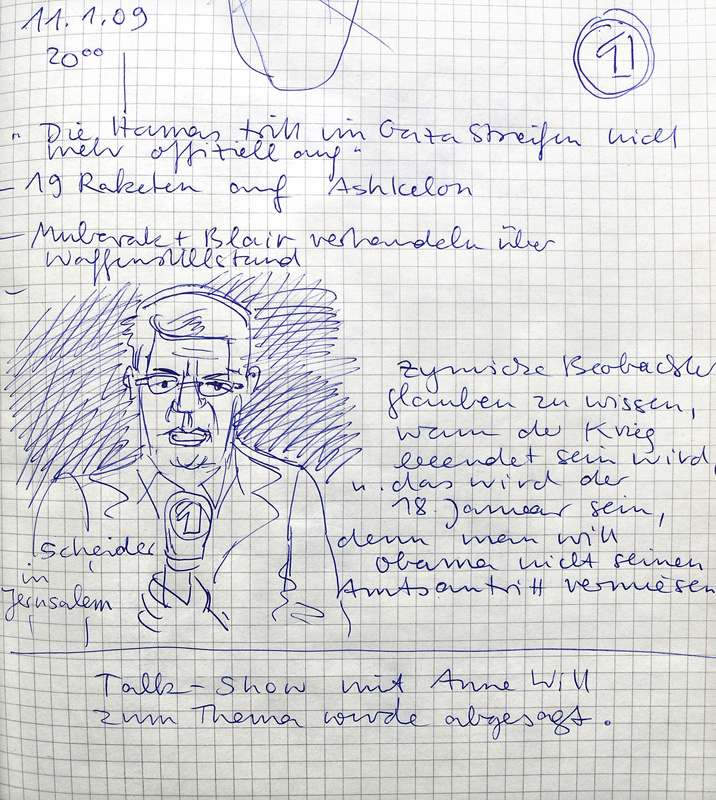 11.1.09
20⁰⁰
1
"Die Hamas tritt im Gaza Streifen nicht
mehr offiziell auf"
- 19 Raketen auf Ashkelon
- Mubarak + Blair verhandeln über
Waffenstillstand
-
zynische Beobachter
glauben zu wissen,
wann der Krieg
beendet sein wird,
u. das wird der
18. Januar sein,
denn man will
Obama nicht seinen
Amtsantritt vermiesen
1
Scheider
in
Jerusalem
Talk-Show mit Anne Will
zum Thema wurde abgesagt.